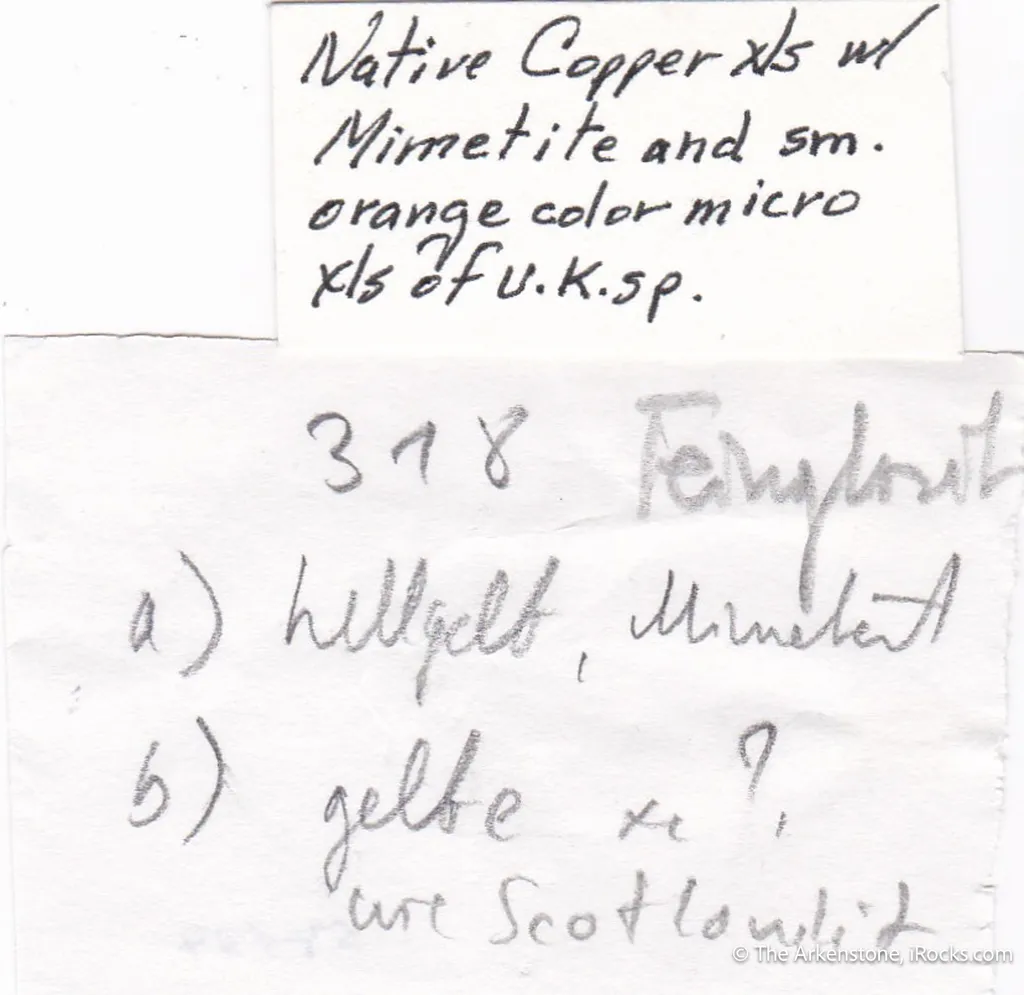 Native Copper xls w/
Mimetite and sm.
orange color micro
xls ? of U.K. sp.
318 Feinglosit
a) hellgelb, Mimetesit
b) gelbe xx ?
wie Scotlandit
© The Arkenstone, iRocks.com